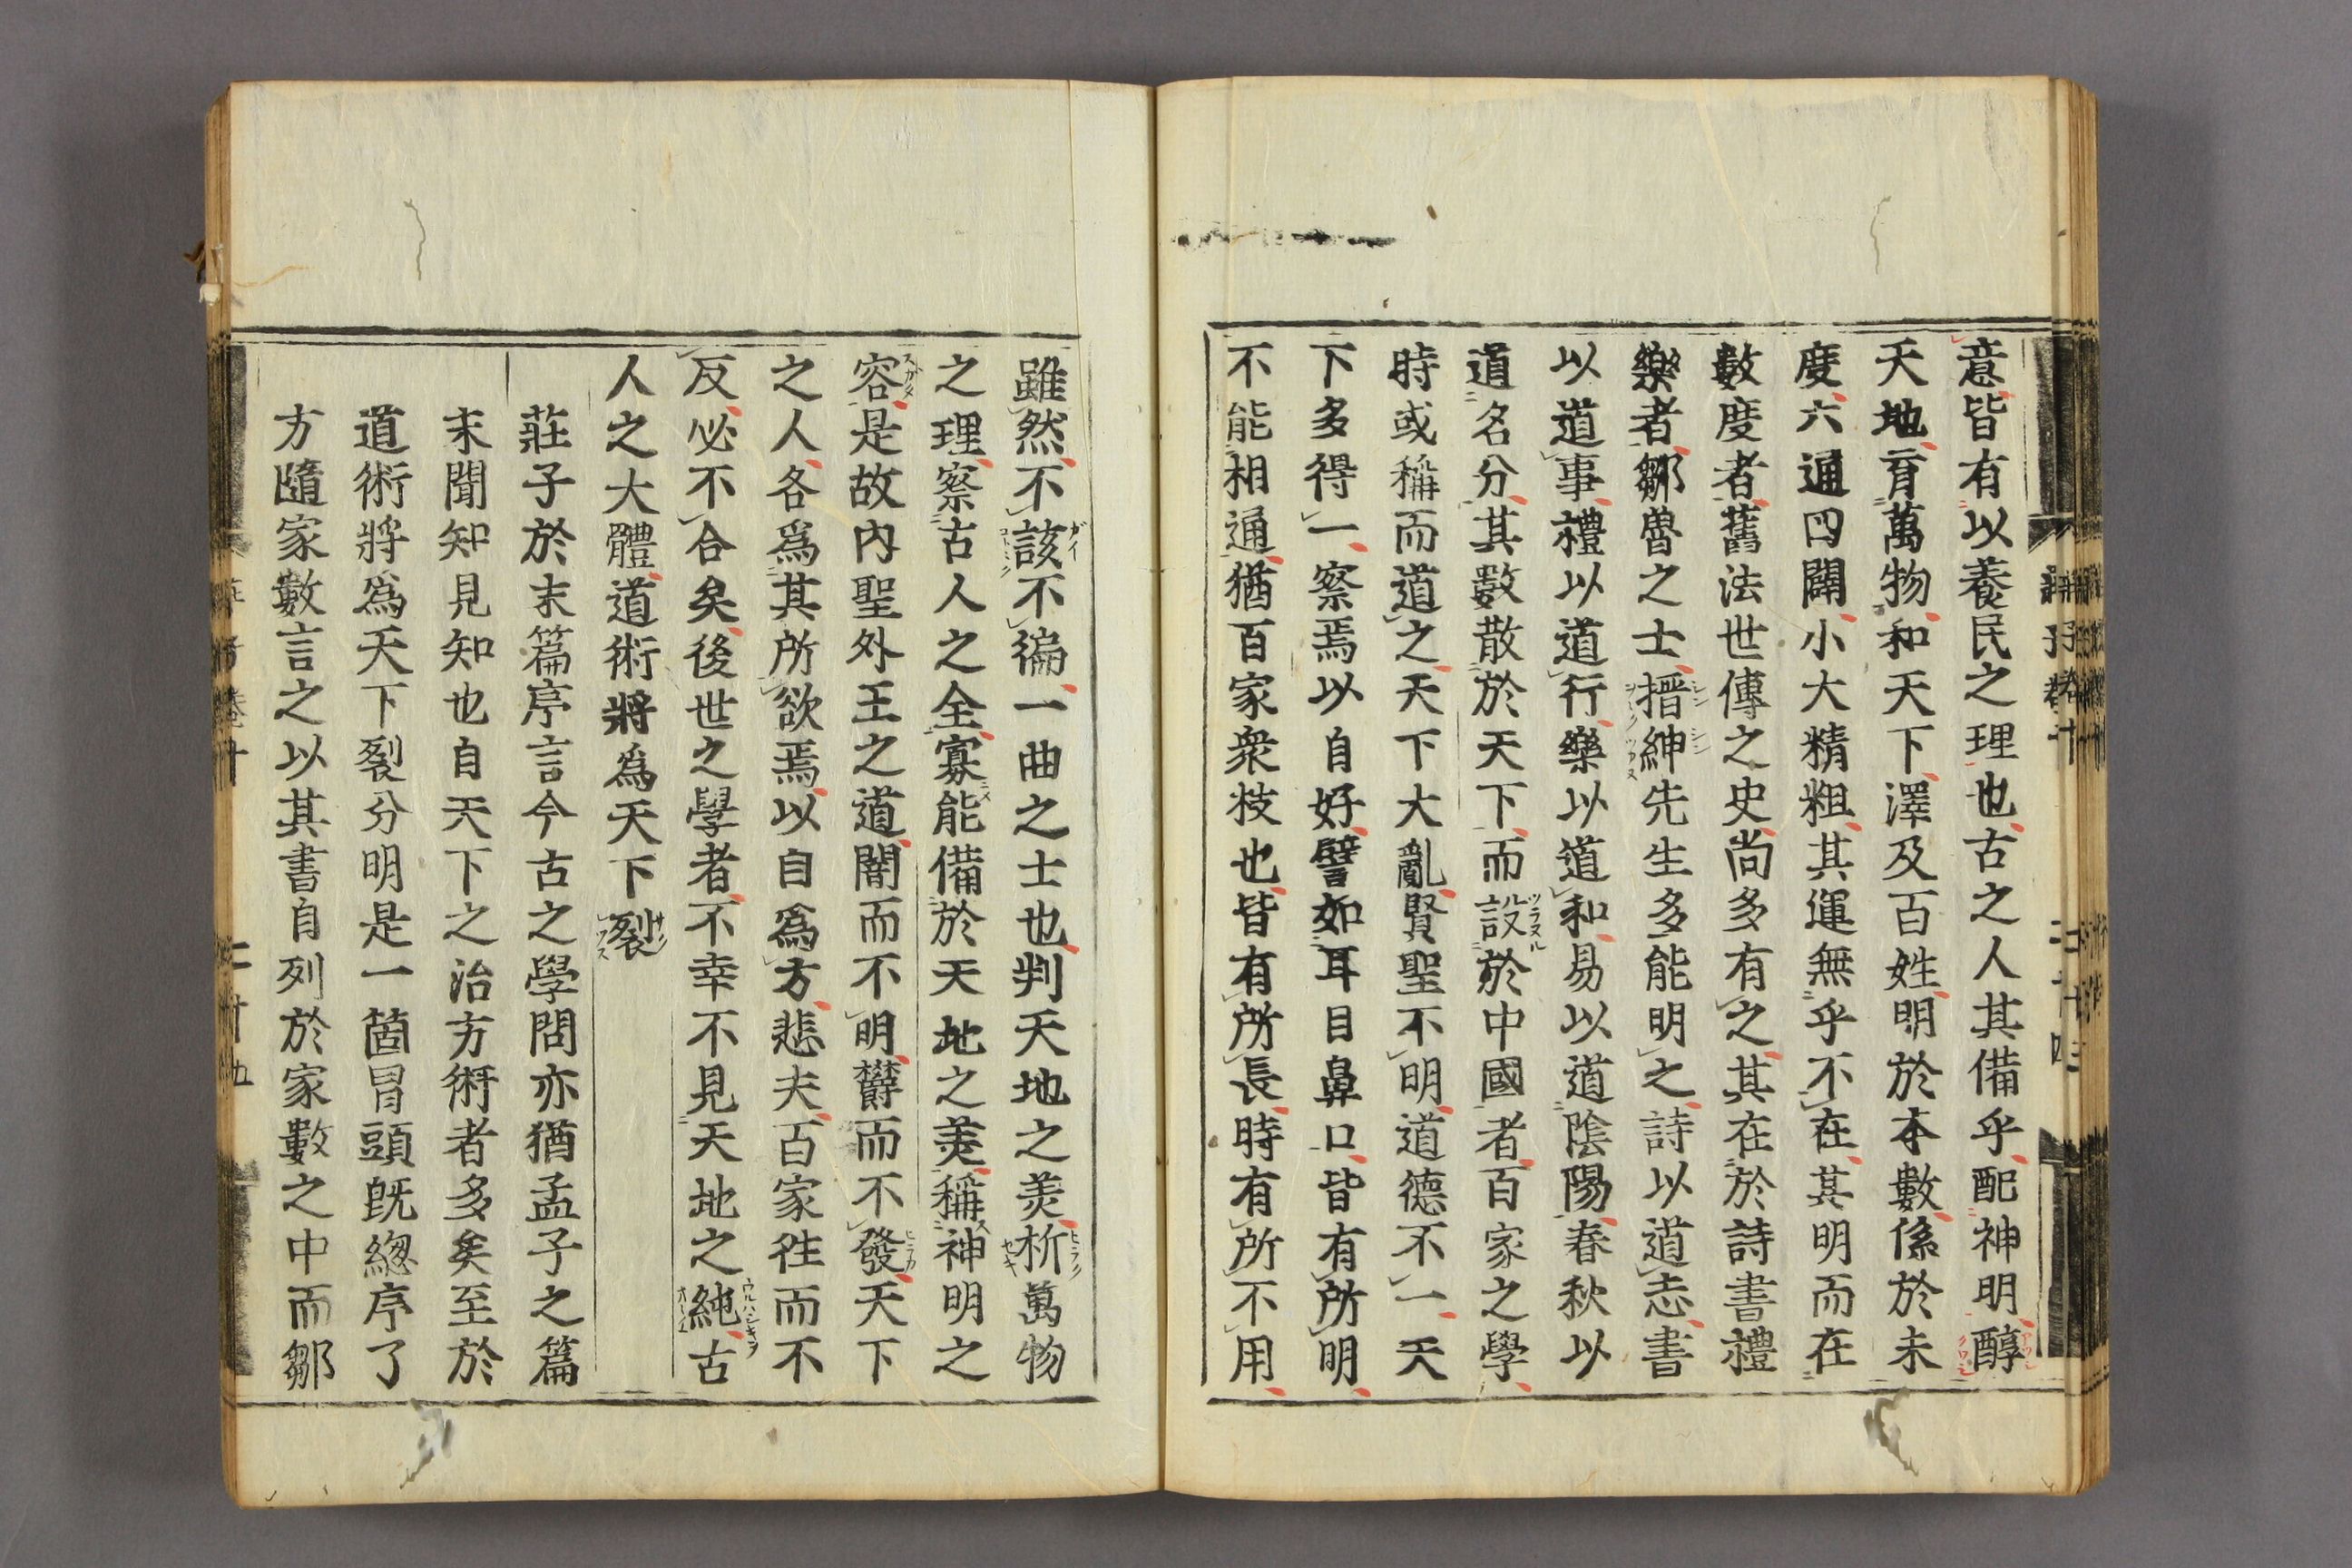 意皆有以養民之理也古之人其備乎配神明醇
天地育萬物和天下澤及百姓明於本數係於末
度六通四闢小大精粗其運無乎不在其明而在
數度者舊法世傳之史尚多有之其在於詩書禮
樂者鄒魯之士搢紳先生多能明之詩以道志書
以道事禮以道行樂以道和易以道陰陽春秋以
道名分其數散於天下而設於中國者百家之學
時或稱而道之天下大亂賢聖不明道德不一天
下多得一察焉以自好譬如耳目鼻口皆有所明
不能相通猶百家衆枝也皆有所長時有所不用
雖然不該不徧一曲之士也判天地之美析萬物
之理察古人之全寡能備於天地之美稱神明之
容是故內聖外王之道闇而不明欝而不發天下
之人各爲其所欲焉以自爲方悲夫百家徃而不
反必不合矣後世之學者不幸不見天地之純古
人之大體道術將爲天下裂
莊子於末篇序言今古之學問亦猶孟子之篇
末聞知見知也自天下之治方術者多矣至於
道術將爲天下裂分明是一箇冒頭旣緫序了
方隨家數言之以其書自列於家數之中而鄒